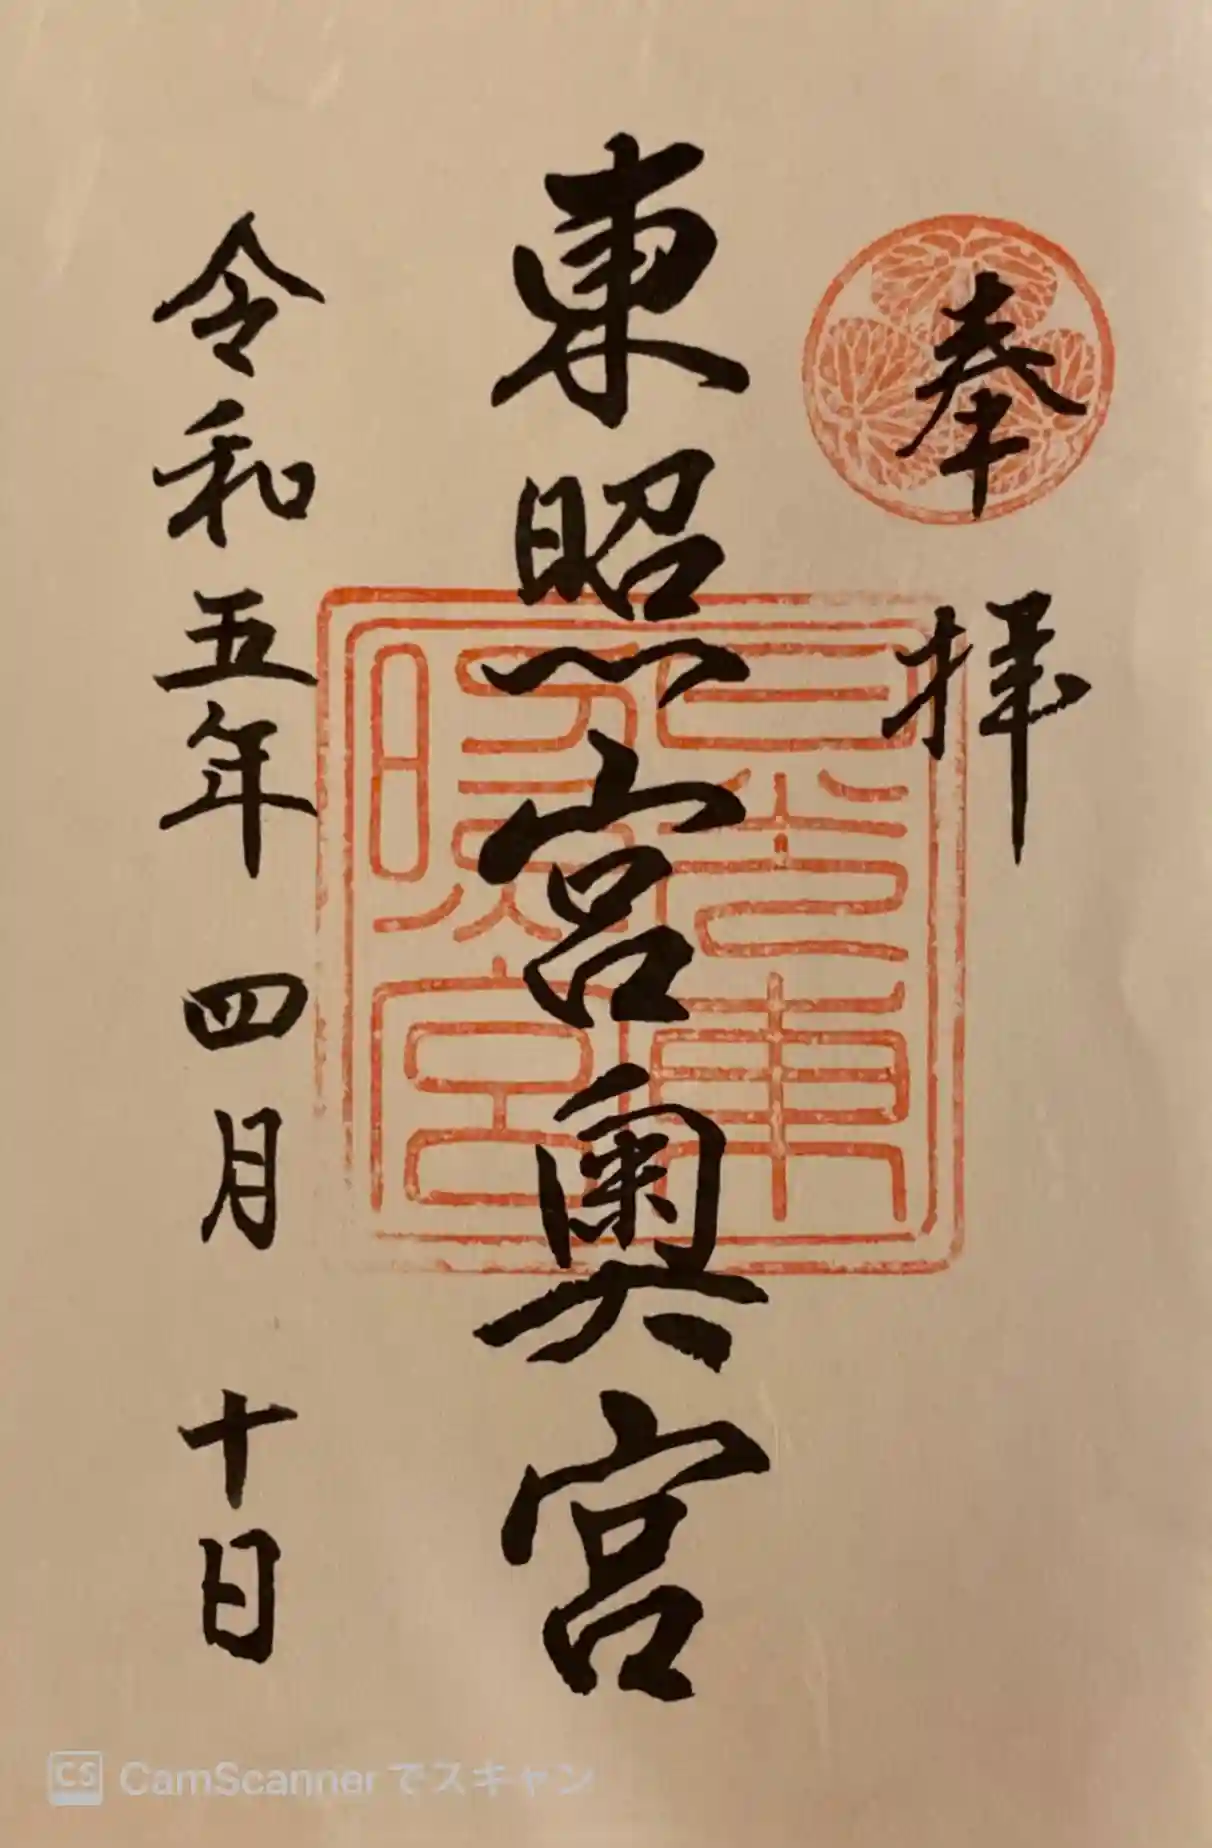 奉拝
東照宮奥宮
令和五年四月十日
CS CamScannerでスキャン